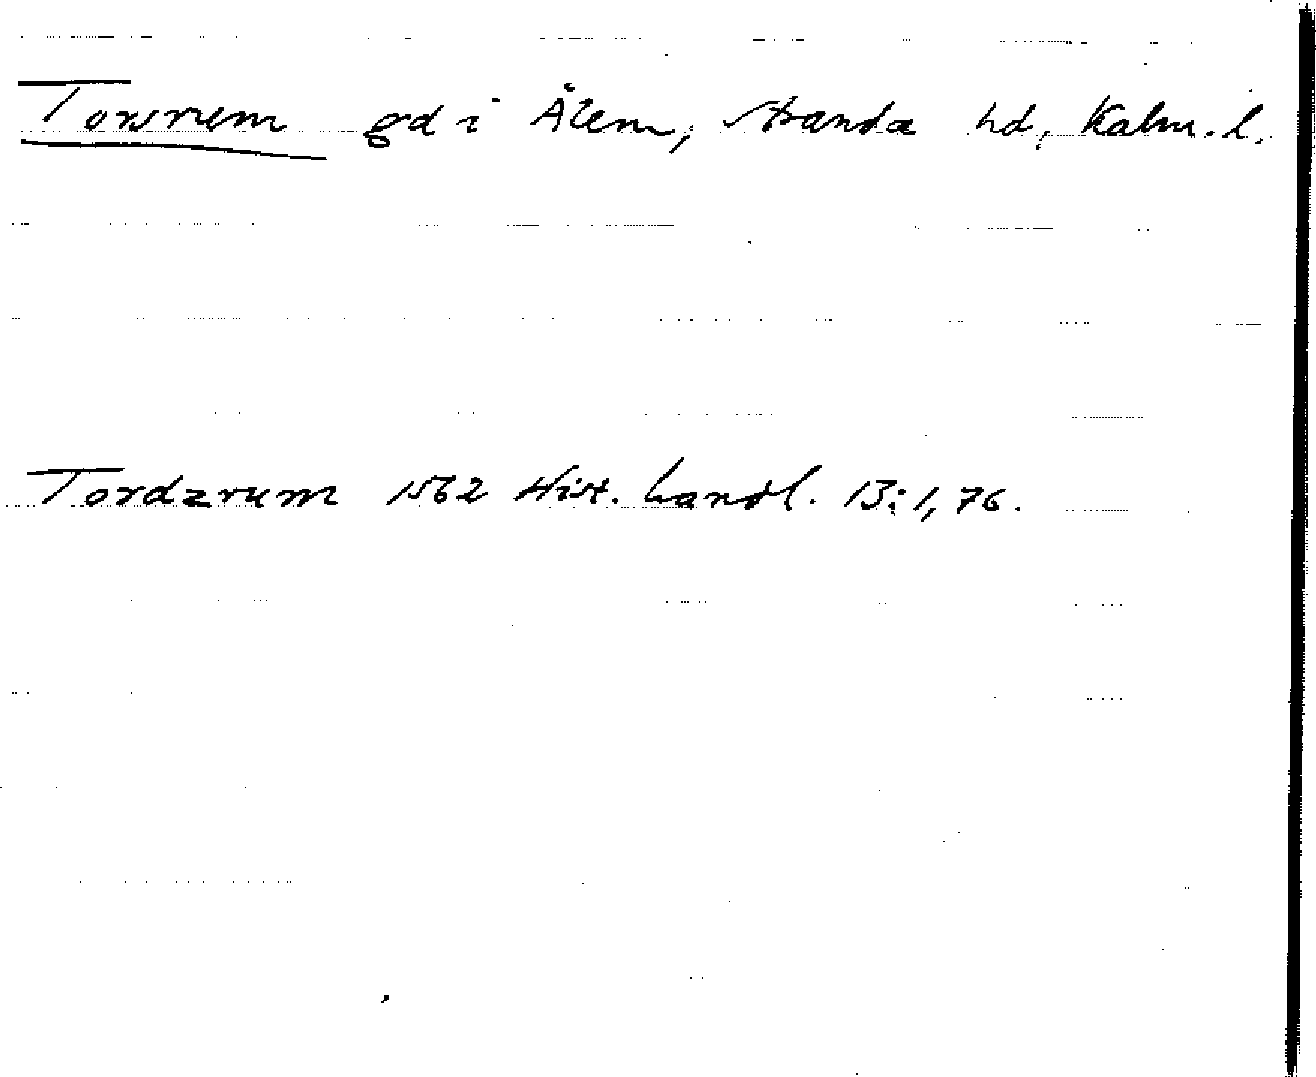 Torsrum gd i Ålem, Stranda hd, Kalm. l.
Tordzrum 1562 Hist. handl. 13:1, 76.